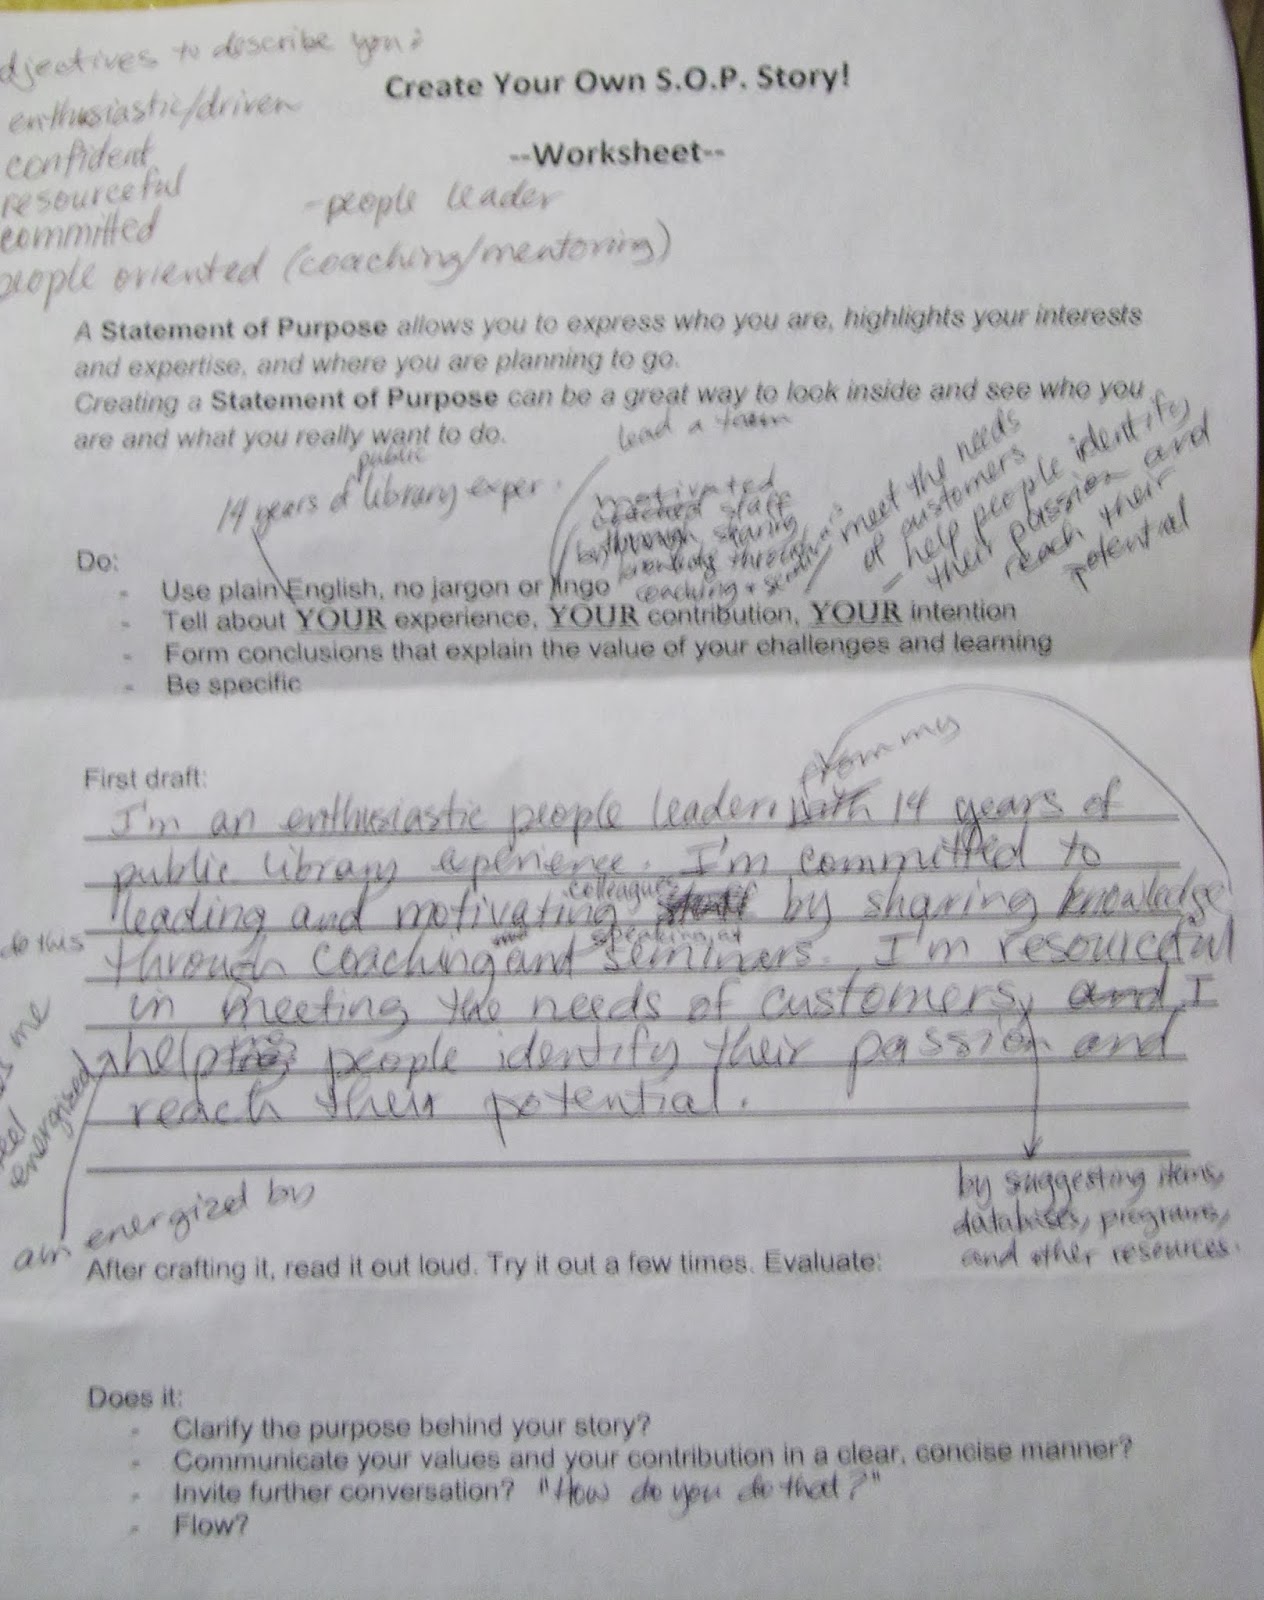 djectives to describe you:
enthusiastic/driven
confident
resourceful
committed
people oriented (coaching/mentoring)
- people leader
Create Your Own S.O.P. Story!
--Worksheet--
A Statement of Purpose allows you to express who you are, highlights your interests
and expertise, and where you are planning to go.
Creating a Statement of Purpose can be a great way to look inside and see who you
are and what you really want to do.
lead a team
public
14 years of library exper.
motivated
coached staff
by through sharing
through
coaching +
meet the needs
of customers
- help people identify
their passion and
reach their
potential
Do:
- Use plain English, no jargon or lingo
- Tell about YOUR experience, YOUR contribution, YOUR intention
- Form conclusions that explain the value of your challenges and learning
- Be specific
from my
First draft:
I'm an enthusiastic people leader. with 14 years of
public library experience. I'm committed to
colleagues
leading and motivating staff by sharing knowledge
speaking at
through coaching and seminars. I'm resourceful
in meeting the needs of customers, and I
help people identify their passion and
reach their potential.
do this
me
energized
am energized by
by suggesting items,
databases, programs,
and other resources.
After crafting it, read it out loud. Try it out a few times. Evaluate:
Does it:
- Clarify the purpose behind your story?
- Communicate your values and your contribution in a clear, concise manner?
- Invite further conversation? "How do you do that?"
- Flow?